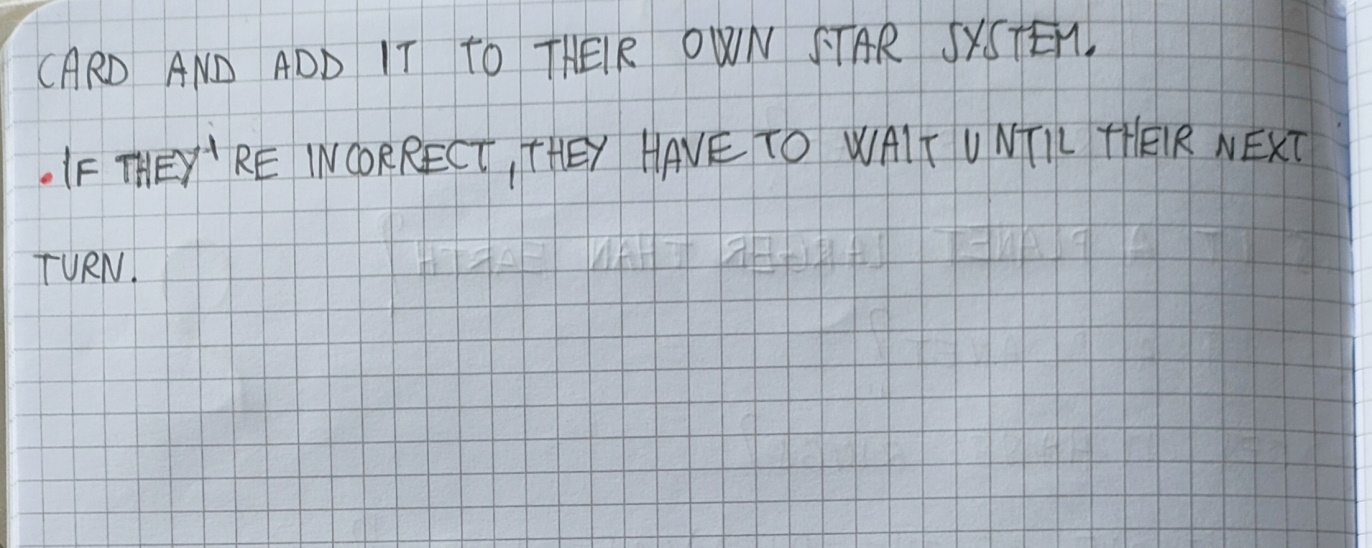 CARD AND ADD IT TO THEIR OWN STAR SYSTEM.
• IF THEY'RE INCORRECT, THEY HAVE TO WAIT UNTIL THEIR NEXT
TURN.